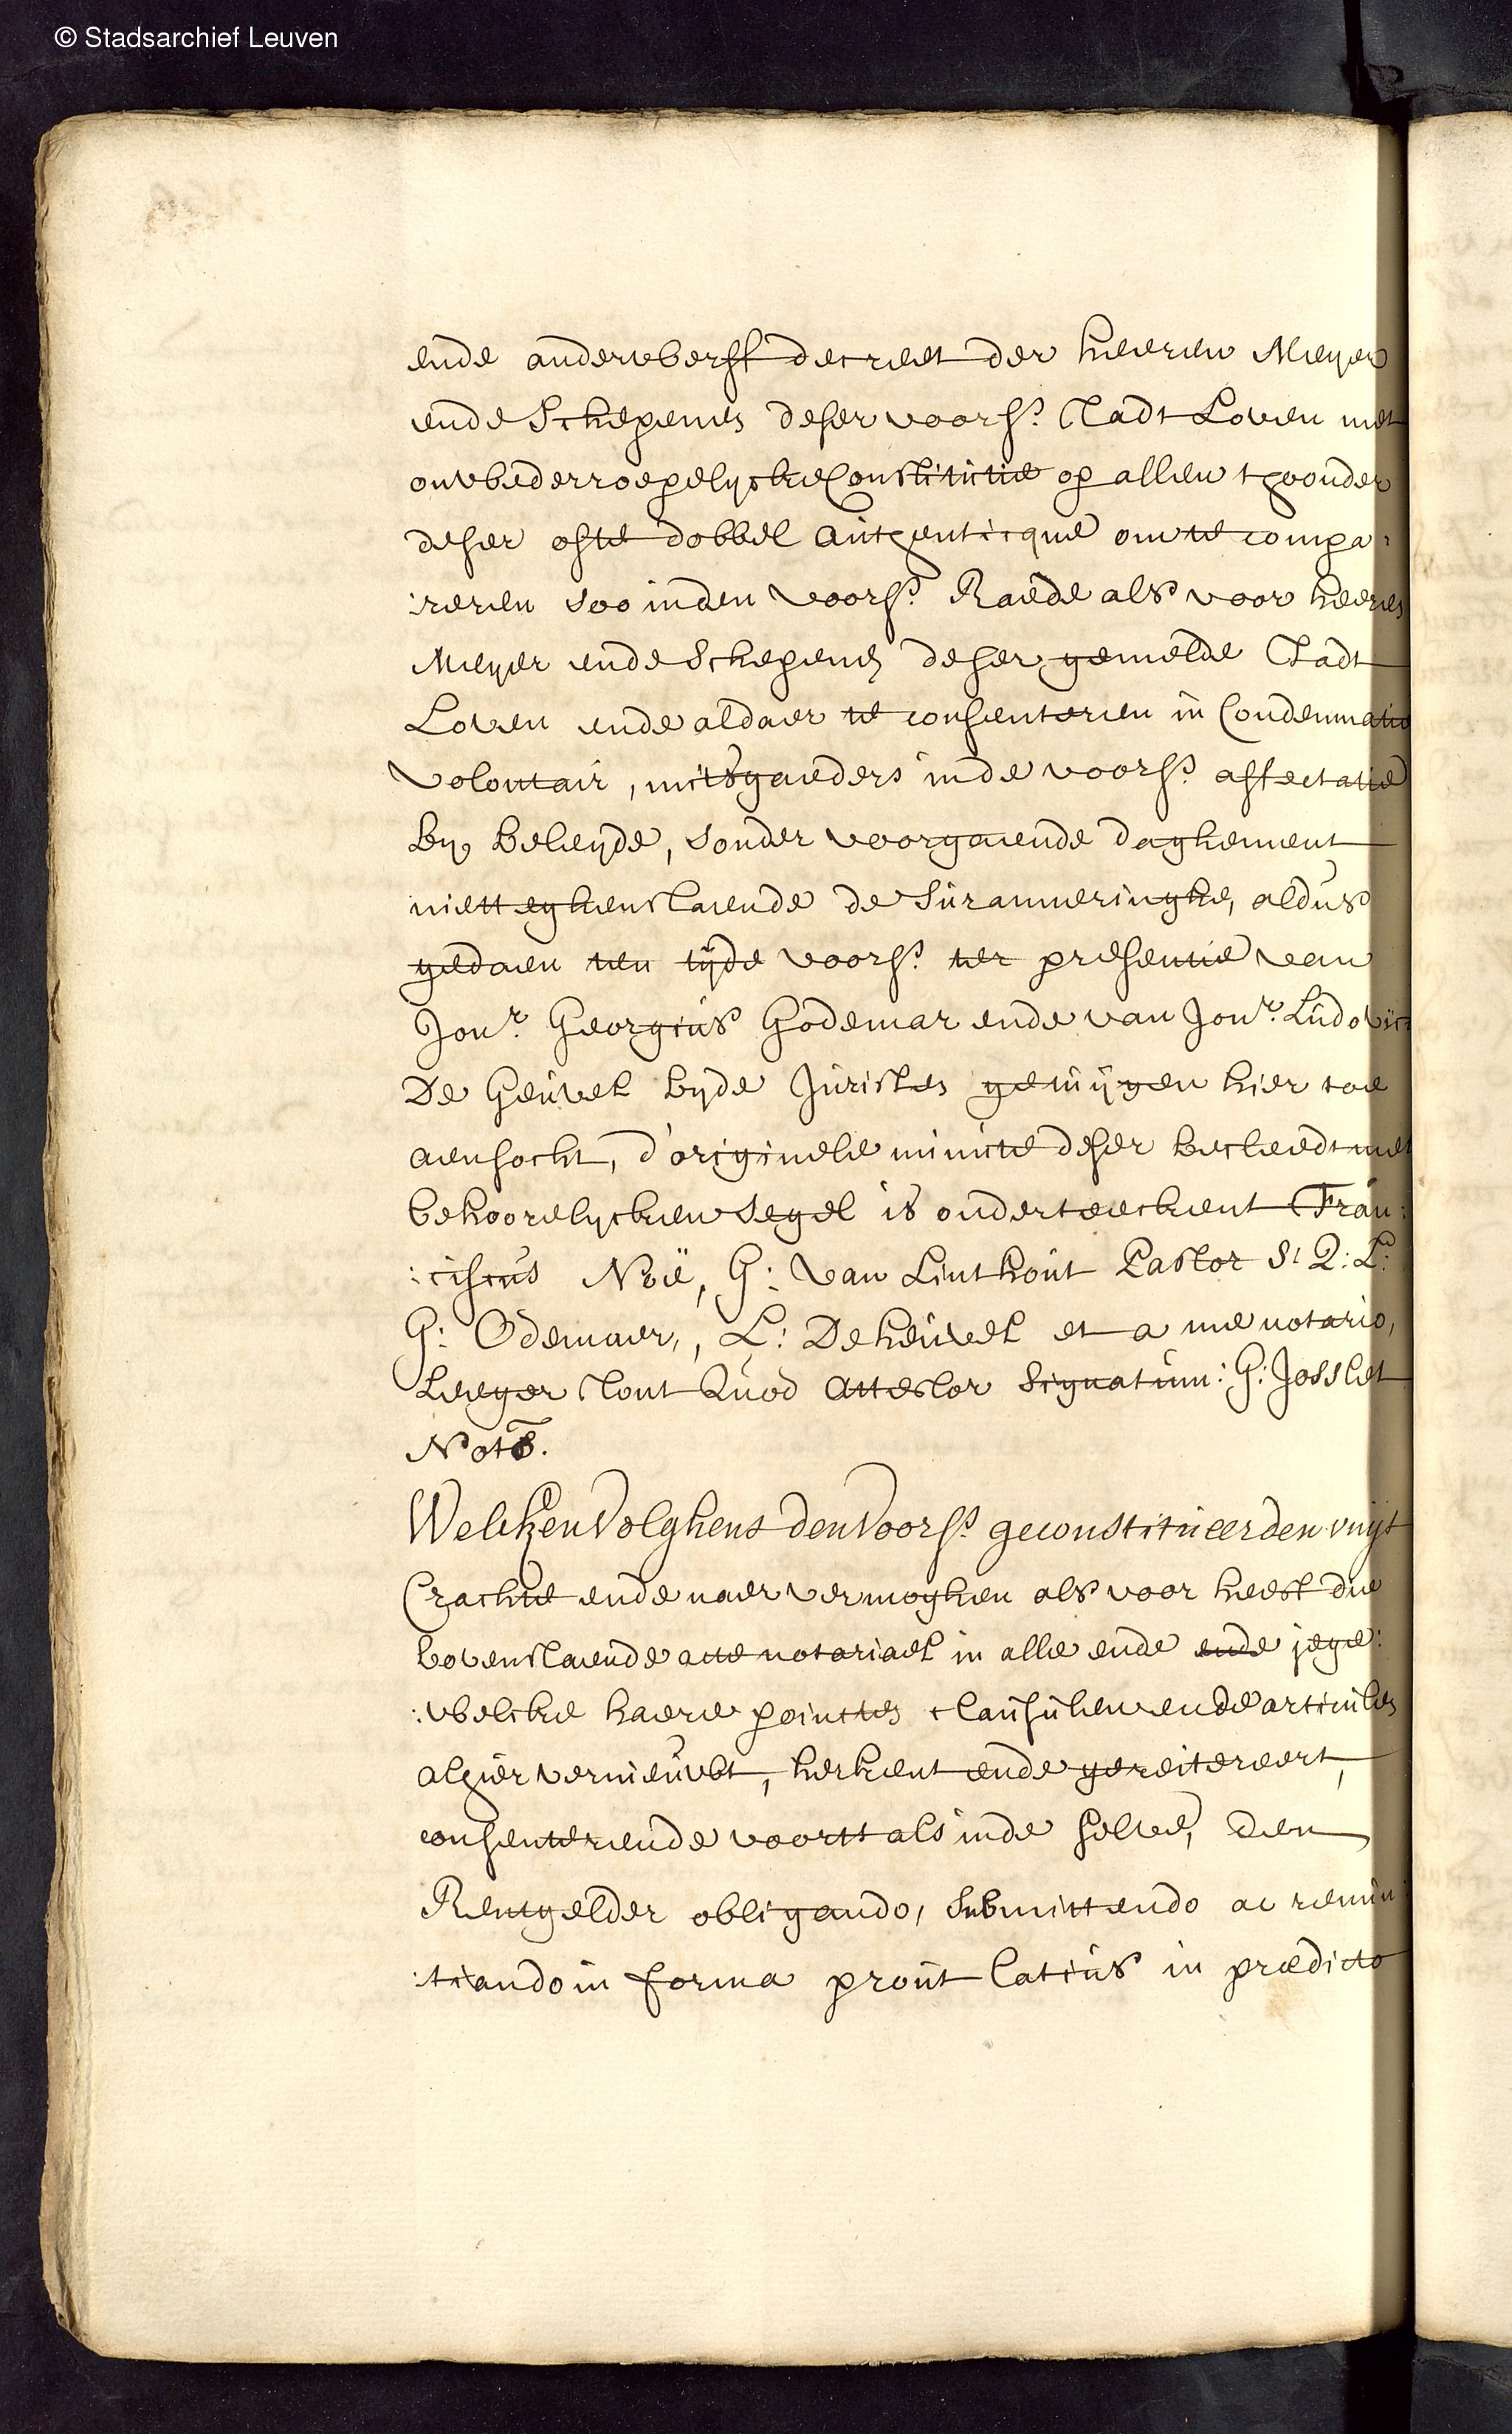 © Stadsarchief Leuven
ende anderwberff decreet der heeren Meyer
ende Schepenen deser voors. Stadt Loven met
onwbederroepelycke Constitutie op allen thoonder
deser ofte dobbel authenticque om te compa:
:reren soo inden voors. Raede als voor heeren
Meyer ende Schepenen deser gemelde Stadt
Loven ende aldaer te consenteren in Condemnatie
volontair, mitsgaeders inde voors. affectatie
by beleyde, sonder voorgaende daghement
nietteghenstaende de suranneringhe, aldus
gedaen ten tyde voors. ter presentie van
Jonr. Georgius Godemar ende van Jonr. Ludovic:
De Heuvel beyde Juristen getuygen hier toe
aensocht, d'originele minute deser becleedt met
behoorelycken segel is onderteeckent Fran:
:ciscus Noë, G: van Linthout Pastor St. Q: L:
G: Odemaer, L: De heuvel et a me notario,
Leeger stont Quod Attestor Signatum: G: Josslet
Nots.
Welcken volghens den voors. geconstitueerden vuyt
Crachte ende naer vermoghen als voor heeft die
bovenstaende acte notariael in alle ende ende jege:
:wbelcke haere poincten clausulen ende articulen
alhier vernieuwbt, herkent ende gereitereert,
consenterende voorts als inde selve, den
Rentgelder obligando, submittendo ac renun:
:tiando in forma prout latius in prædicto